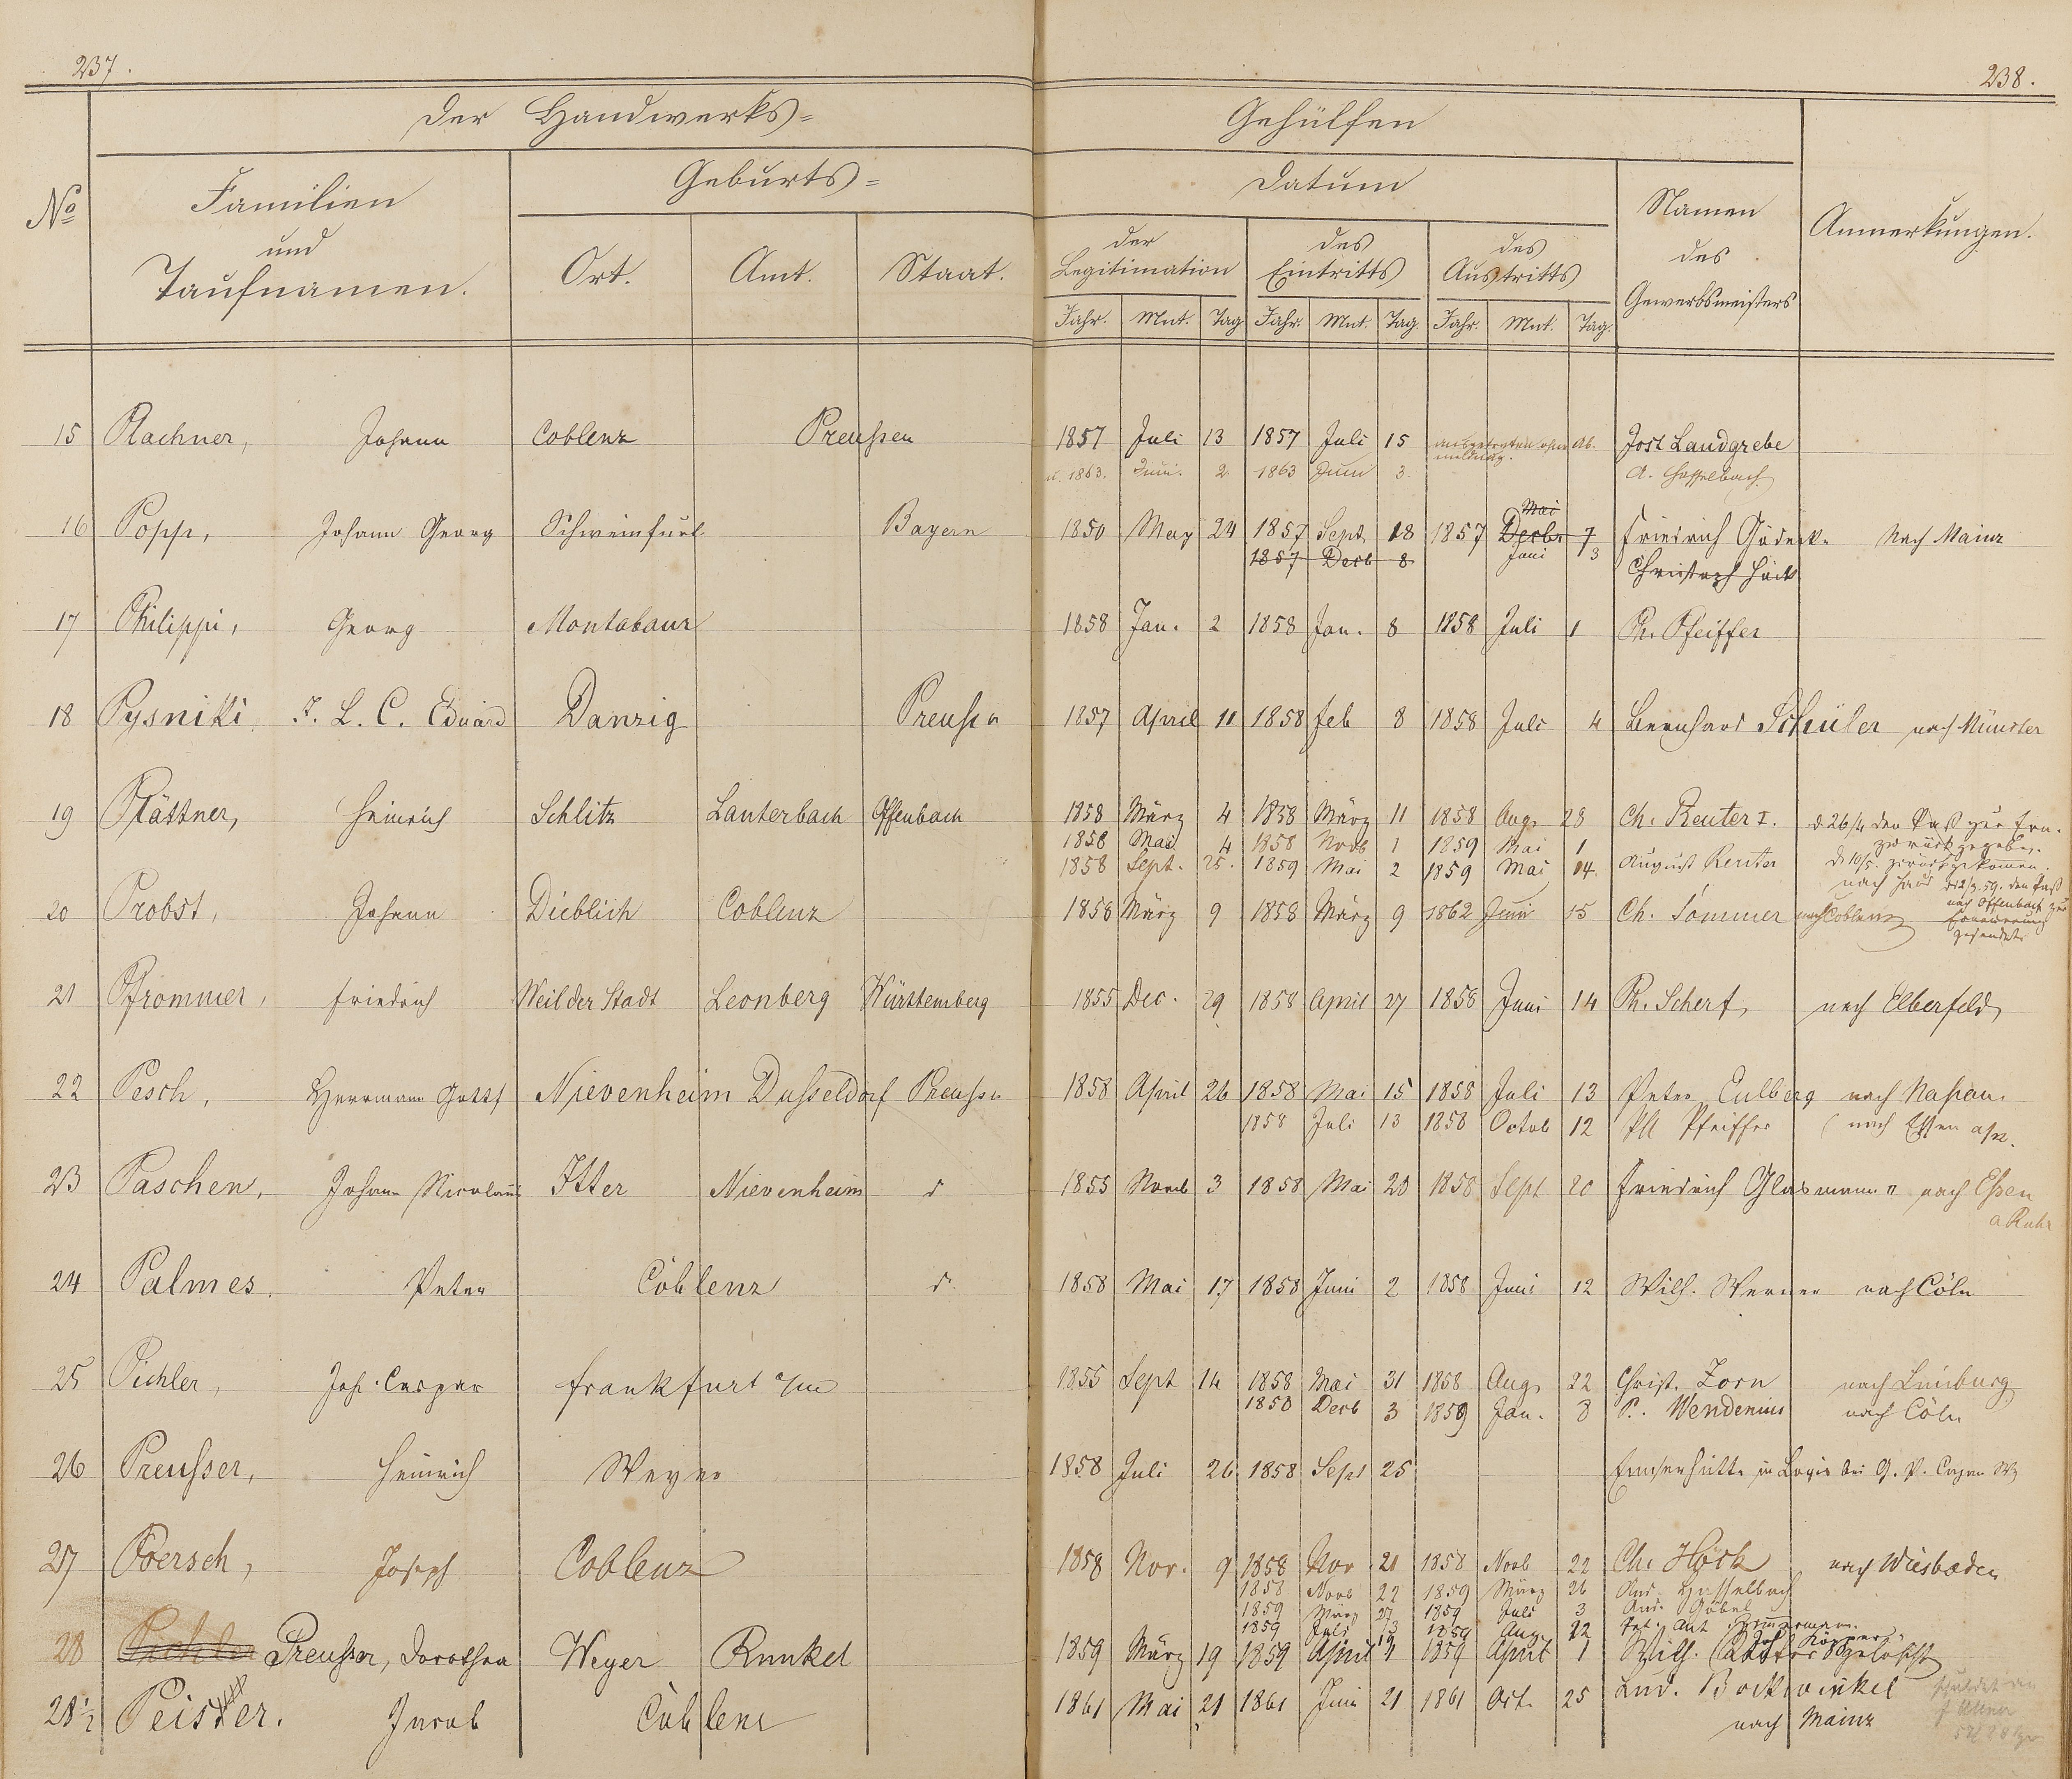 237.
238.
Der Handwerks= Gehülfen
No
Familien und Taufnamen.
Geburts=
Ort. Amt. Staat.
Datum
der Legitimation
des Eintritts
des Austritts
Namen des Gewerbsmeisters
Anmerkungen.
Jahr. Mnt. Tag Jahr. Mnt. Tag. Jahr. Mnt. Tag.
15 Plachner, Johann Coblenz Preußen 1857 Juli 13 1857 Juli 15 Ab- Jost Landgrebe
u. 1863. Juni. 2. 1863 Juni 3. A. Hasselbach
16 Popp, Johann Georg Schweinfurt Bayern 1850 May 24 1857 Sept. 18 1857 Mai Decbr 7 Friedrich Nach Mainz
1857 Decb 8 Juni 13 Christoph Höck
17 Philippi, Georg Montabaur 1858 Jan. 2 1858 Jan. 8 1858 Juli 1 Ph. Pfeiffer
18 Pysniki F. L. C. Eduard Danzig Preußn 1857 April 11 1858 Feb 8 1858 Juli 4 Bernhard Schüler nach Münster
19 Plättner, Heinrich Schlitz Lauterbach Offenbach 1858 März 4 1858 März 11 1858 Aug. 28 Ch. Reuter I. d. 26/4 den Paß zur Ern.
zurückgegeben.
1858 Mai 4 1858 Novb 1 1859 Mai 1
1858 Sept. 25. 1859 Mai 2 1859 Mai 14. August Reuter d. 10/5. zurückgekommen.
nach Haus d. 2/3. 59. den Paß
nach Offenbach zur
Erneuerung
gesendet.
20 Probst, Johann Dieblich Coblenz 1858 März 9 1858 März 9 1862 Juni 15 Ch. Sommer nach Coblenz
21 Pfrommer, Friedrich Weil der Stadt Leonberg Württemberg 1855 Dec. 29 1858 April 27 1858 Juni 14 Ph. Scherf, nach Elberfeld
22 Pesch, Herrmann Gottf Nievenheim Dusseldorf Preußn 1858 April 26 1858 Mai 15 1858 Juli 13 Peter Eulberg nach Naßau.
1858 Juli 13 1858 Octob 12 Ph Pfeiffer nach Essen a/R.
23 Paschen, Johann Nicolaus Itter Nievenheim d 1855 Novb 3 1858 Mai 20 1858 Sept 20 Friedrich Glasmann nach Eßen
a Ruhr
24 Palmes. Peter Coblenz d. 1858 Mai 17 1858 Juni 2 1858 Juni 12 Wilh. Werner nach Cöln
25 Pichler, Joh. Caspar Frankfurt a/m 1855 Sept 14 1858 Mai 31 1858 Aug. 22 Christ. Zorn nach Limburg
1858 Decb 3 1859 Jan. 8 P. Wendenius nach Cöln
26 Preußer, Heinrich Weyer 1858 Juli 26 1858 Sept 25 Emserhütte in Logis bei G. P.
27 Poersch, Joseph Coblenz 1858 Nov. 9 1858 Nov 21 1858 Novb 22 Ch. Höck nach Wiesbaden
1858 Novb 22 1859 März 26 And. Hasselbach
1859 März 27 1859 Juli 3 And. Göbel
1859 Juli 3 1859 Aug. 22 Pet. Ant Zimmermann.
28 Pichler Preußer, Dorothea Weyer Runkel 1859 März 19 1859 April 1 1859 April 1 Wilh. gelöscht
28 1/2 Peister. Jacob Coblenz 1861 Mai 21 1861 Juni 21 1861 Oct. 25 Lud. Bockwinkel
nach Mainz